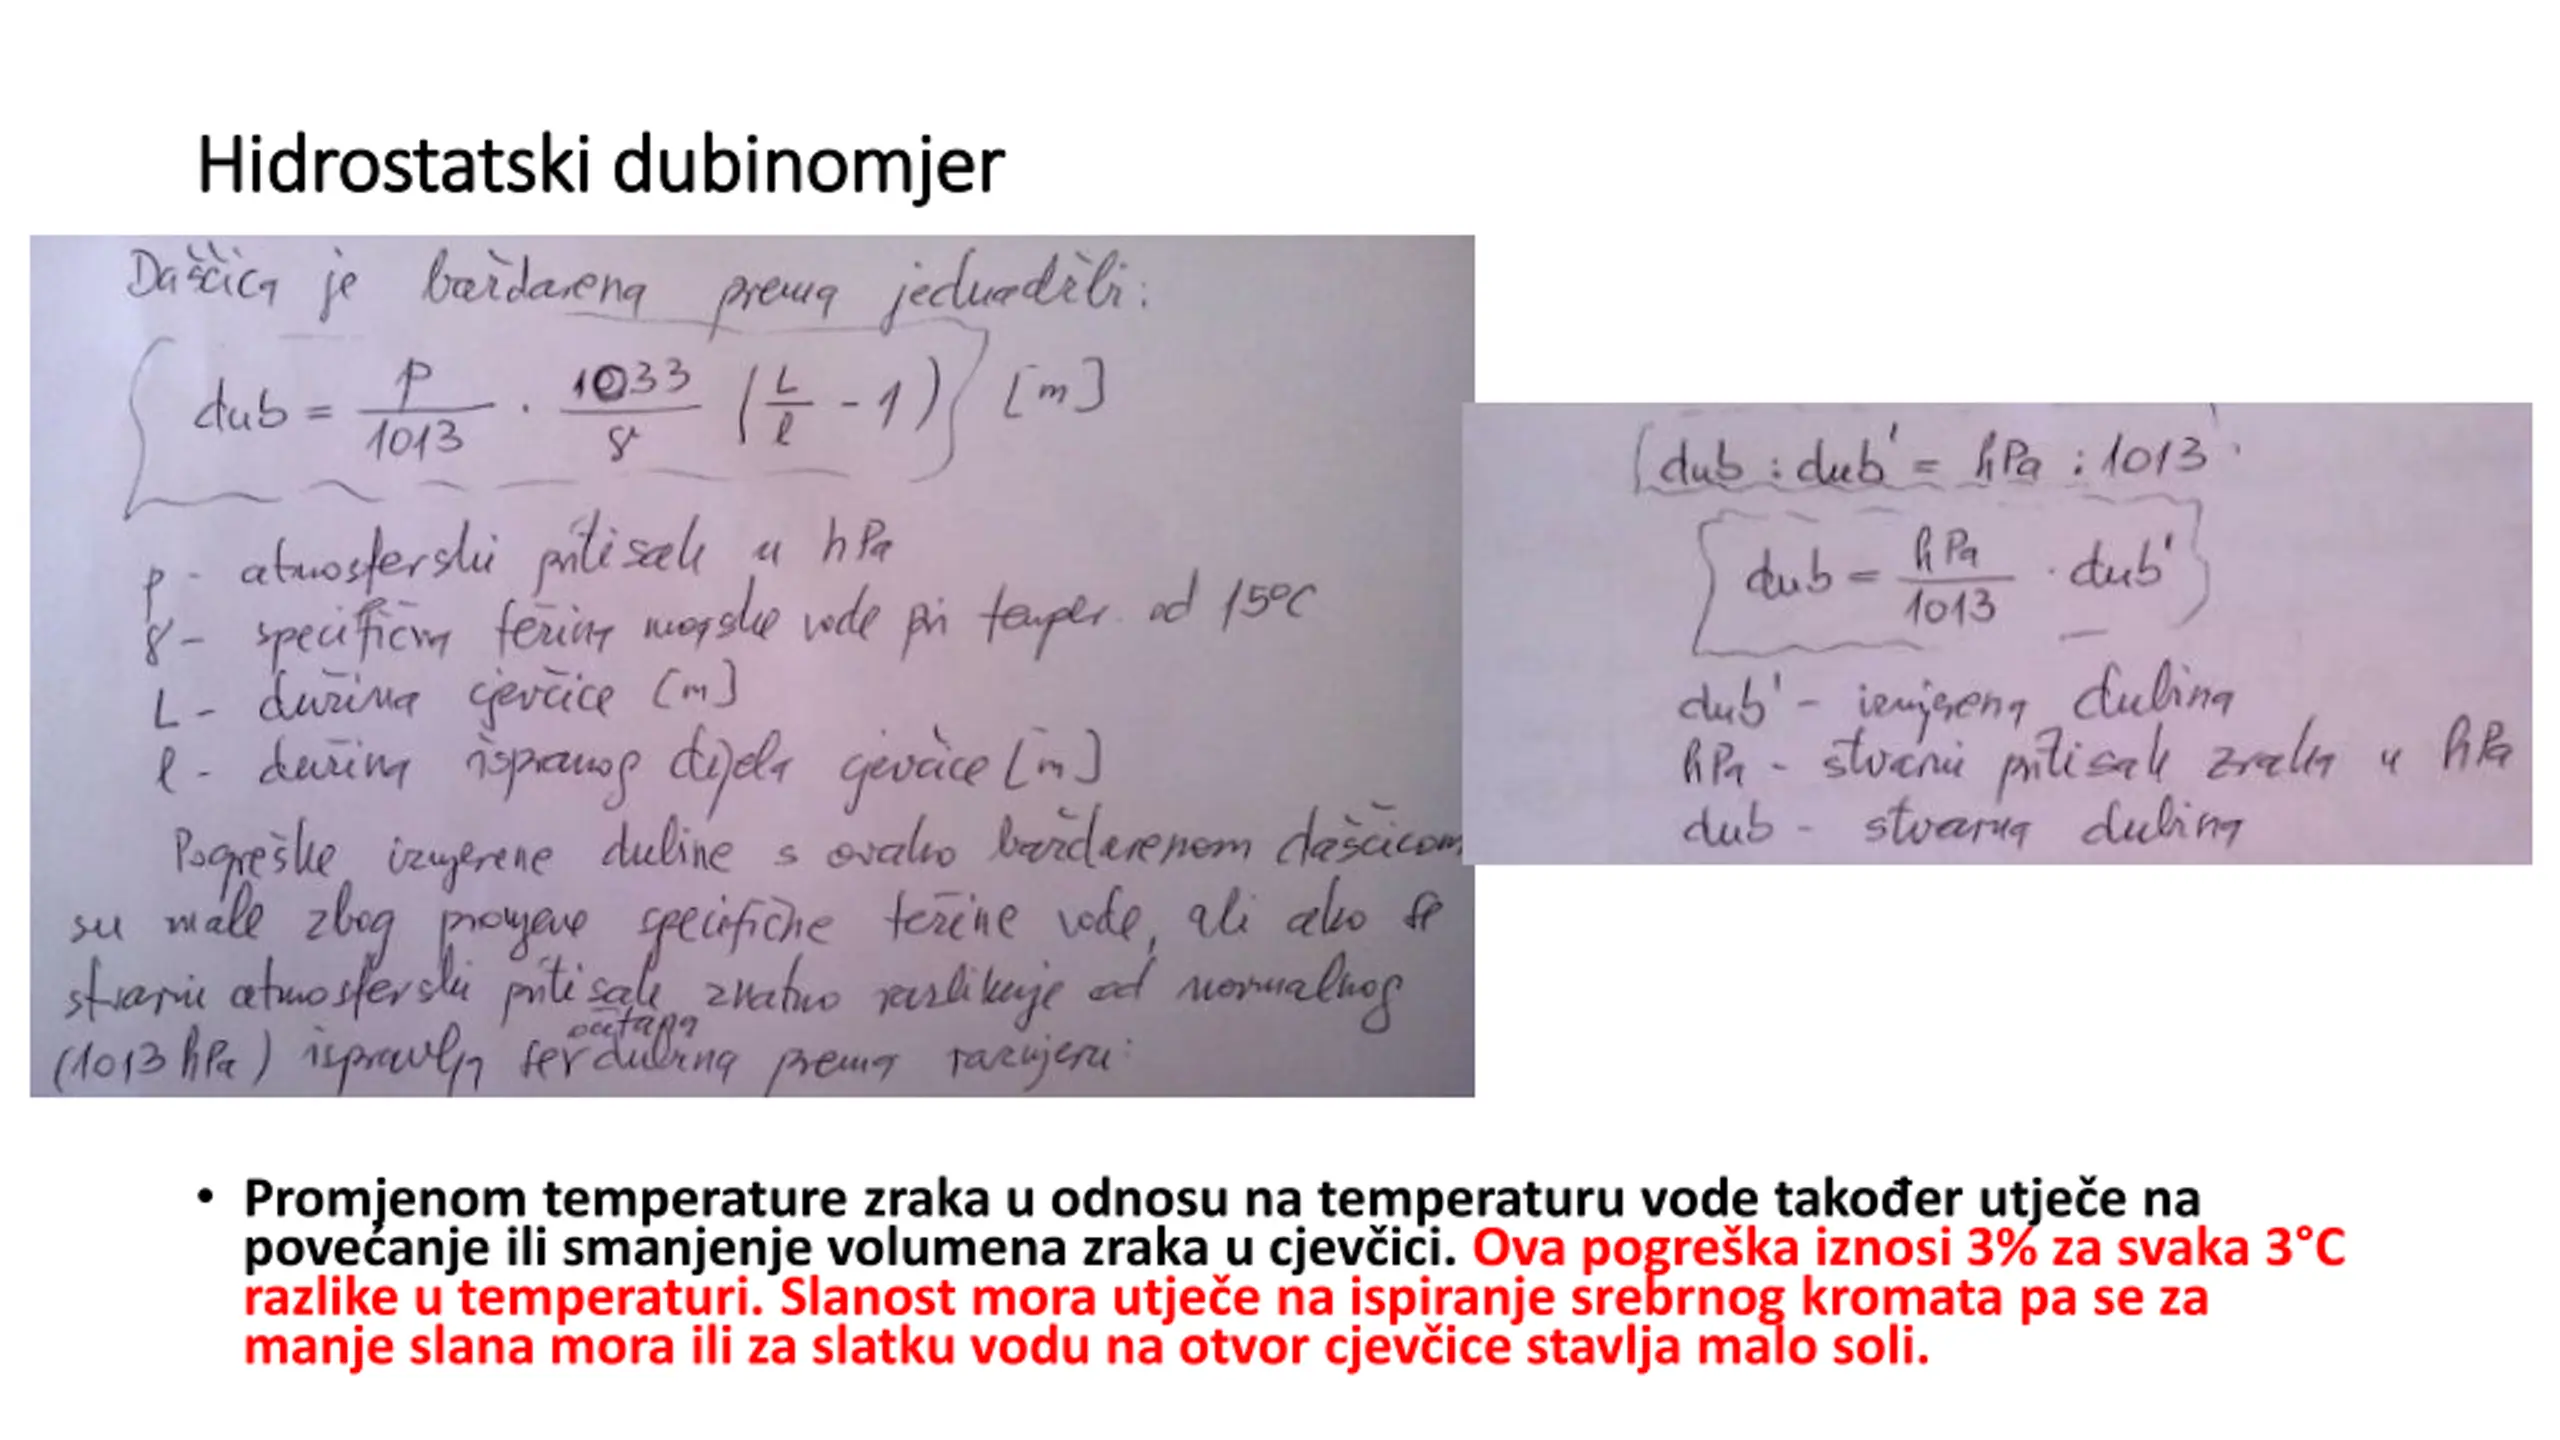 Hidrostatski dubinomjer
Daščica je baždarena prema jednadžbi:
dub = p/1013 · 1033/γ (L/l - 1) [m]
p - atmosferski pritisak u hPa
γ - specifična težina morske vode pri temper. od 15°C
L - dužina cjevčice [m]
l - dužina ispranog dijela cjevčice [m]
Pogreške izmjerene dubine s ovako baždarenom daščicom
su male zbog promjene specifične težine vode, ali ako se
stvarni atmosferski pritisak znatno razlikuje od normalnog
očitana
(1013 hPa) ispravlja se dubina prema razmjeru:
dub : dub' = hPa : 1013
dub = hPa/1013 · dub'
dub' - izmjerena dubina
hPa - stvarni pritisak zraka u hPa
dub - stvarna dubina
• Promjenom temperature zraka u odnosu na temperaturu vode također utječe na
povećanje ili smanjenje volumena zraka u cjevčici. Ova pogreška iznosi 3% za svaka 3°C
razlike u temperaturi. Slanost mora utječe na ispiranje srebrnog kromata pa se za
manje slana mora ili za slatku vodu na otvor cjevčice stavlja malo soli.